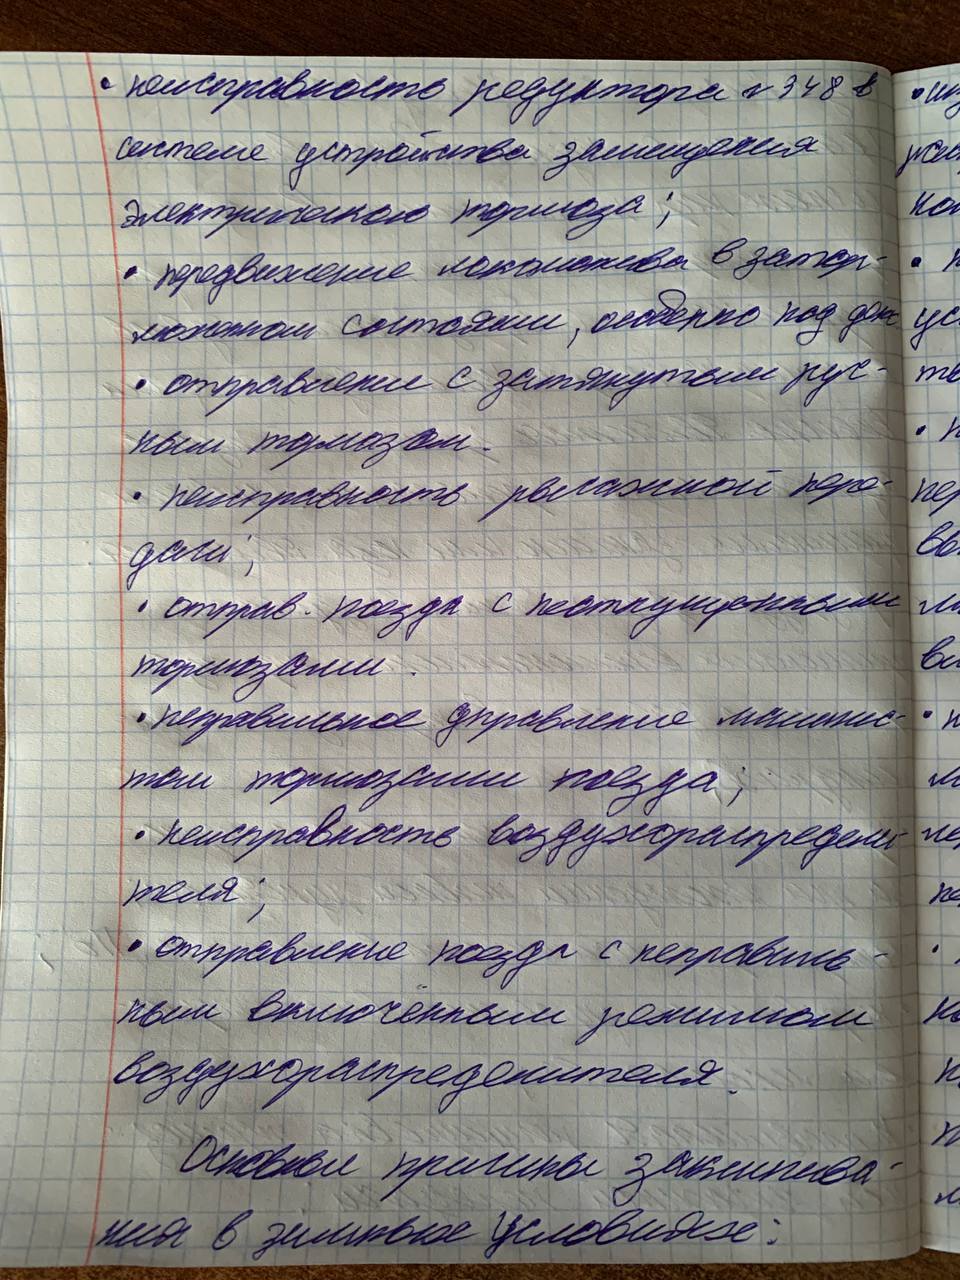 • неисправность редуктора № 348 в
системе устройства замещения
электрического тормоза;
• передвижение локомотива в затор-
моженом состоянии, особенно под
• отправлении с затянутым руч-
ным тормозом.
• неисправность рычажной пере-
дачи;
• отправ. поезда с неотпущенными
тормозами.
• неправильное управление машинис-
том тормозами поезда;
• неисправность воздухораспреде
теля;
• отправление поезда с неправиль-
ным включённым режимом
воздухораспределителя.
Основные причины заклинива-
ния в зимних условиях: